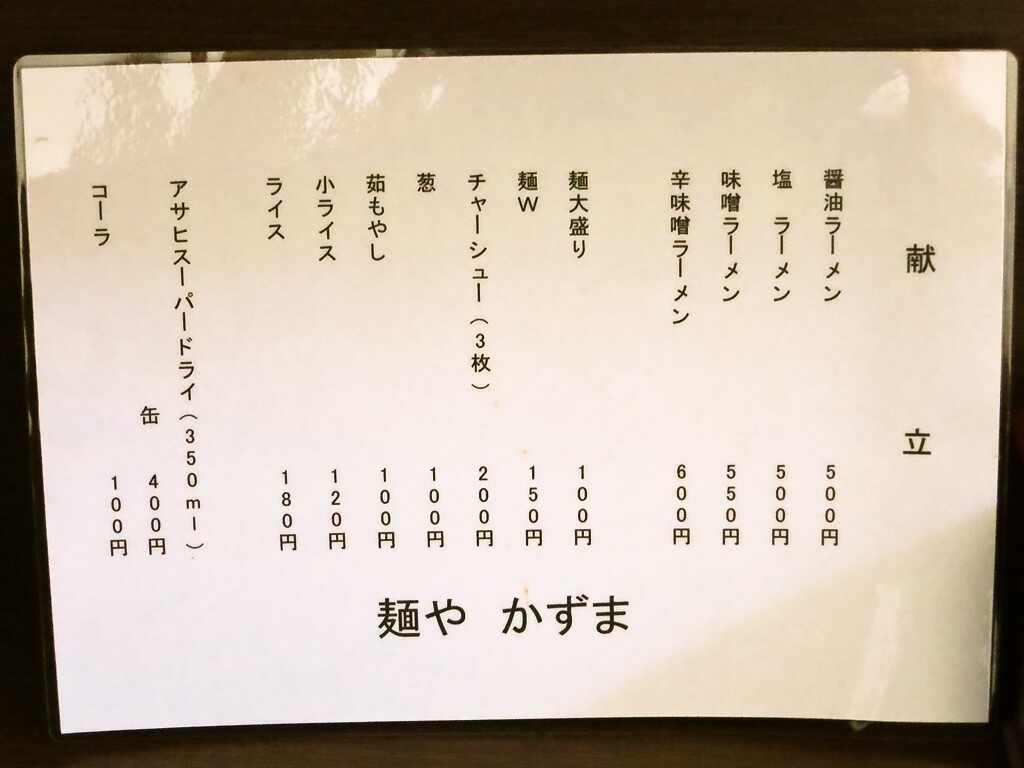 献立
醤油ラーメン 500円
塩 ラーメン 500円
味噌ラーメン 550円
辛味噌ラーメン 600円
麺大盛り 100円
麺W 150円
チャーシュー(3枚) 200円
葱 100円
茹もやし 100円
小ライス 120円
ライス 180円
アサヒスーパードライ(350ml)
缶 400円
コーラ 100円
麺や かずま